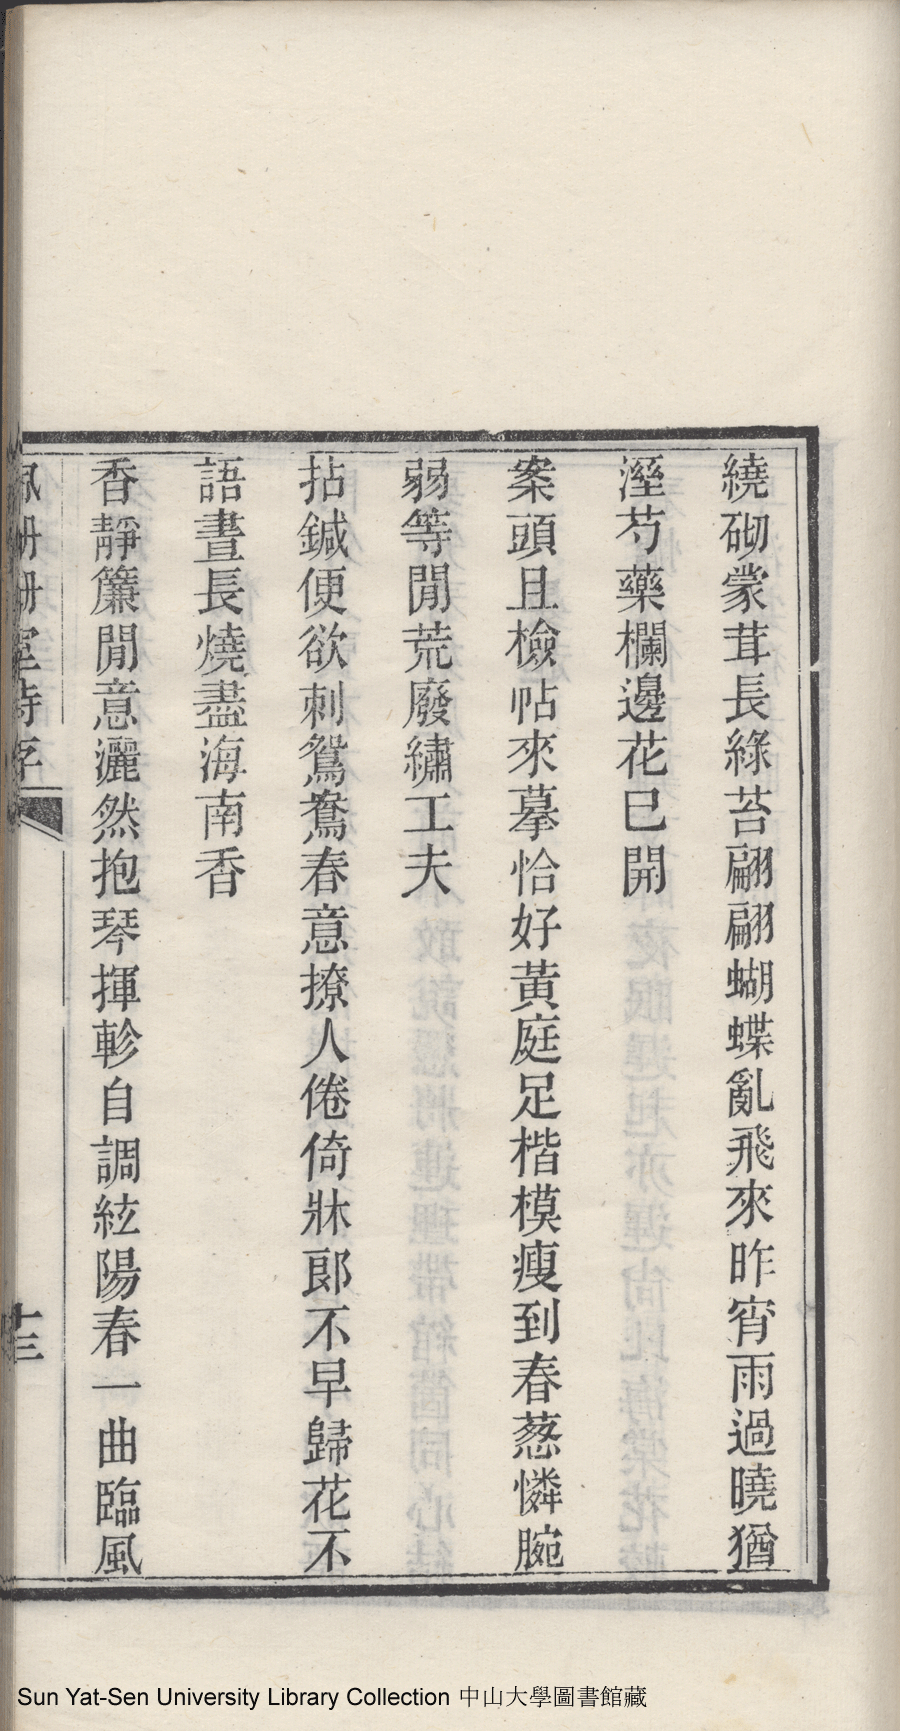 繞砌蒙茸長綠苔翩翩蝴蝶亂飛來昨宵雨過曉猶
溼芍藥欄邊花已開
案頭且檢帖來摹恰好黃庭足楷模瘦到春葱憐腕
弱等閒荒廢繡工夫
拈鍼便欲刺鴛鴦春意撩人倦倚牀郎不早歸花不
語晝長燒盡海南香
香靜簾閒意灑然抱琴揮軫自調絃陽春一曲臨風
佩珊珊室詩存
十三
Sun Yat-Sen University Library Collection 中山大學圖書館藏